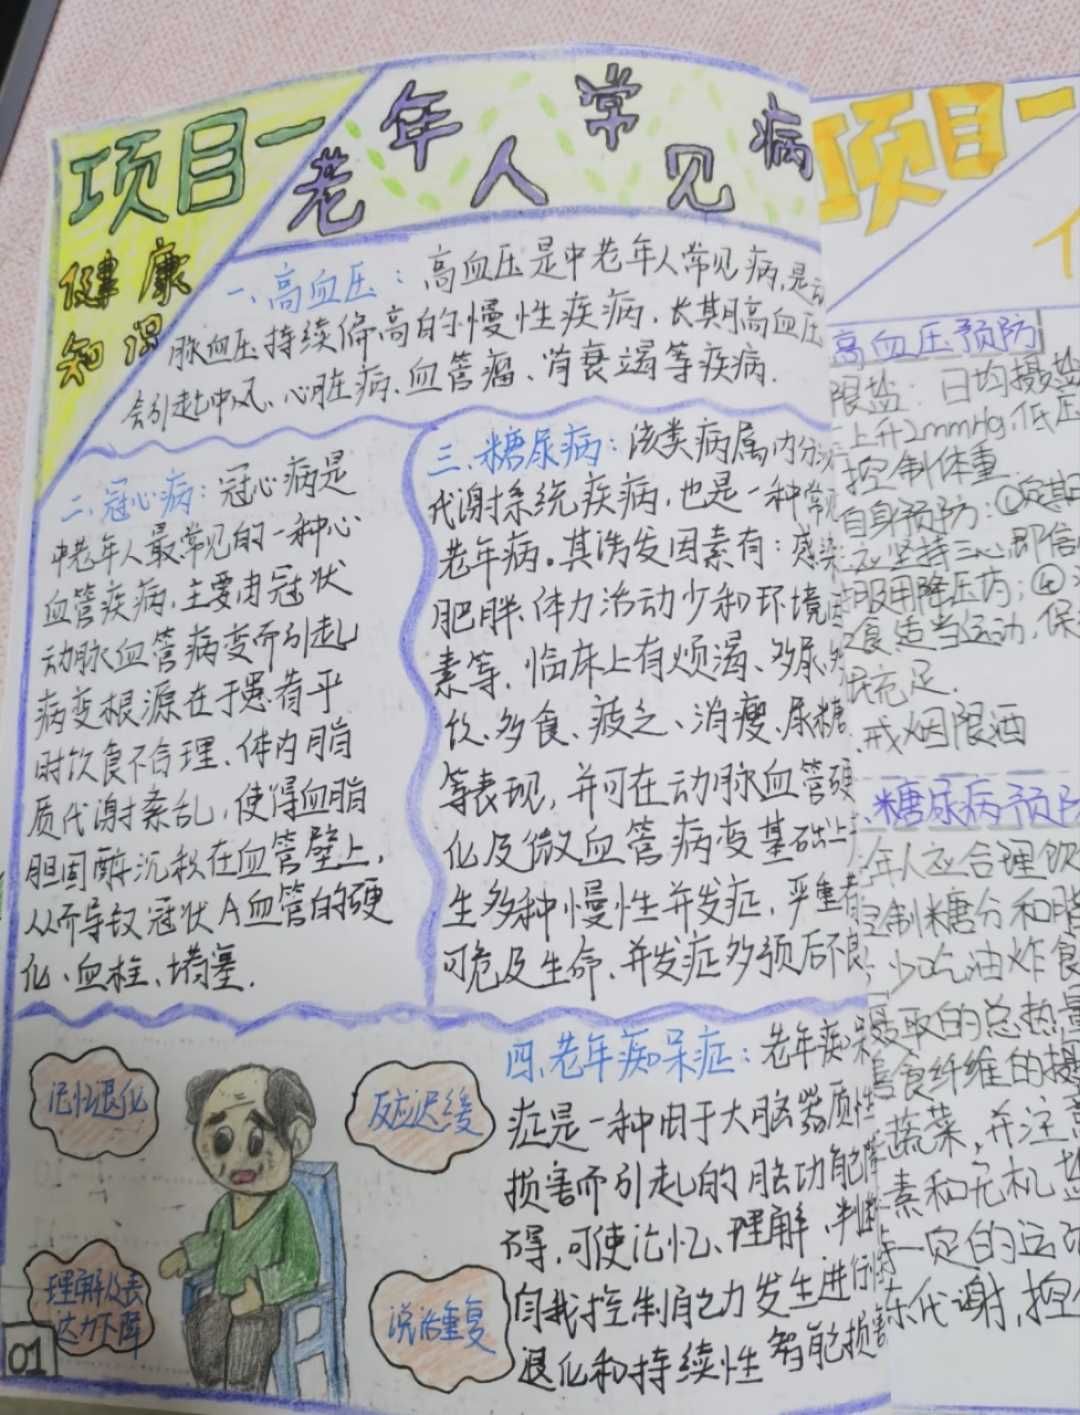 项目一
健康
知识
老年人常见病
一、高血压：高血压是中老年人常见病，是动
脉血压持续偏高的慢性疾病，长期高血压
会引起中风、心脏病、血管瘤、肾衰竭等疾病．
二、冠心病：冠心病是
中老年人最常见的一种心
血管疾病，主要由冠状
动脉血管病变而引起
病变根源在于患者平
时饮食不合理、体内脂
质代谢紊乱，使得血脂
胆固醇沉积在血管壁上，
从而导致冠状A血管的硬
化、血栓、堵塞．
三、糖尿病：该类病属内分泌
代谢系统疾病，也是一种常见
老年病。其诱发因素有：感染
肥胖、体力活动少和环境因
素等．临床上有烦渴、多尿、
饮、多食、疲乏、消瘦、尿糖
等表现，并可在动脉血管硬
化及微血管病变基础上
生多种慢性并发症，严重者
可危及生命．并发症多预后不良
四、老年痴呆症：老年痴呆
症是一种由于大脑器质性
损害而引起的脑功能障
碍，可使记忆、理解、判断
自我控制能力发生进行性
退化和持续性智能损害
记忆退化
反应迟缓
理解及表
达力下降
说话重复
01
项目一
高血压预防
限盐：日均摄盐
上升2mmHg，低压
控制体重
自身预防：①定期
应坚持三心，即信
服用降压药；④
食适当运动，保
充足．
戒烟限酒
糖尿病预防
年人应合理饮
控制糖分和脂
少吃油炸食
摄取的总热量
食纤维的摄
蔬菜，并注意
素和无机盐
一定的运动
代谢，控